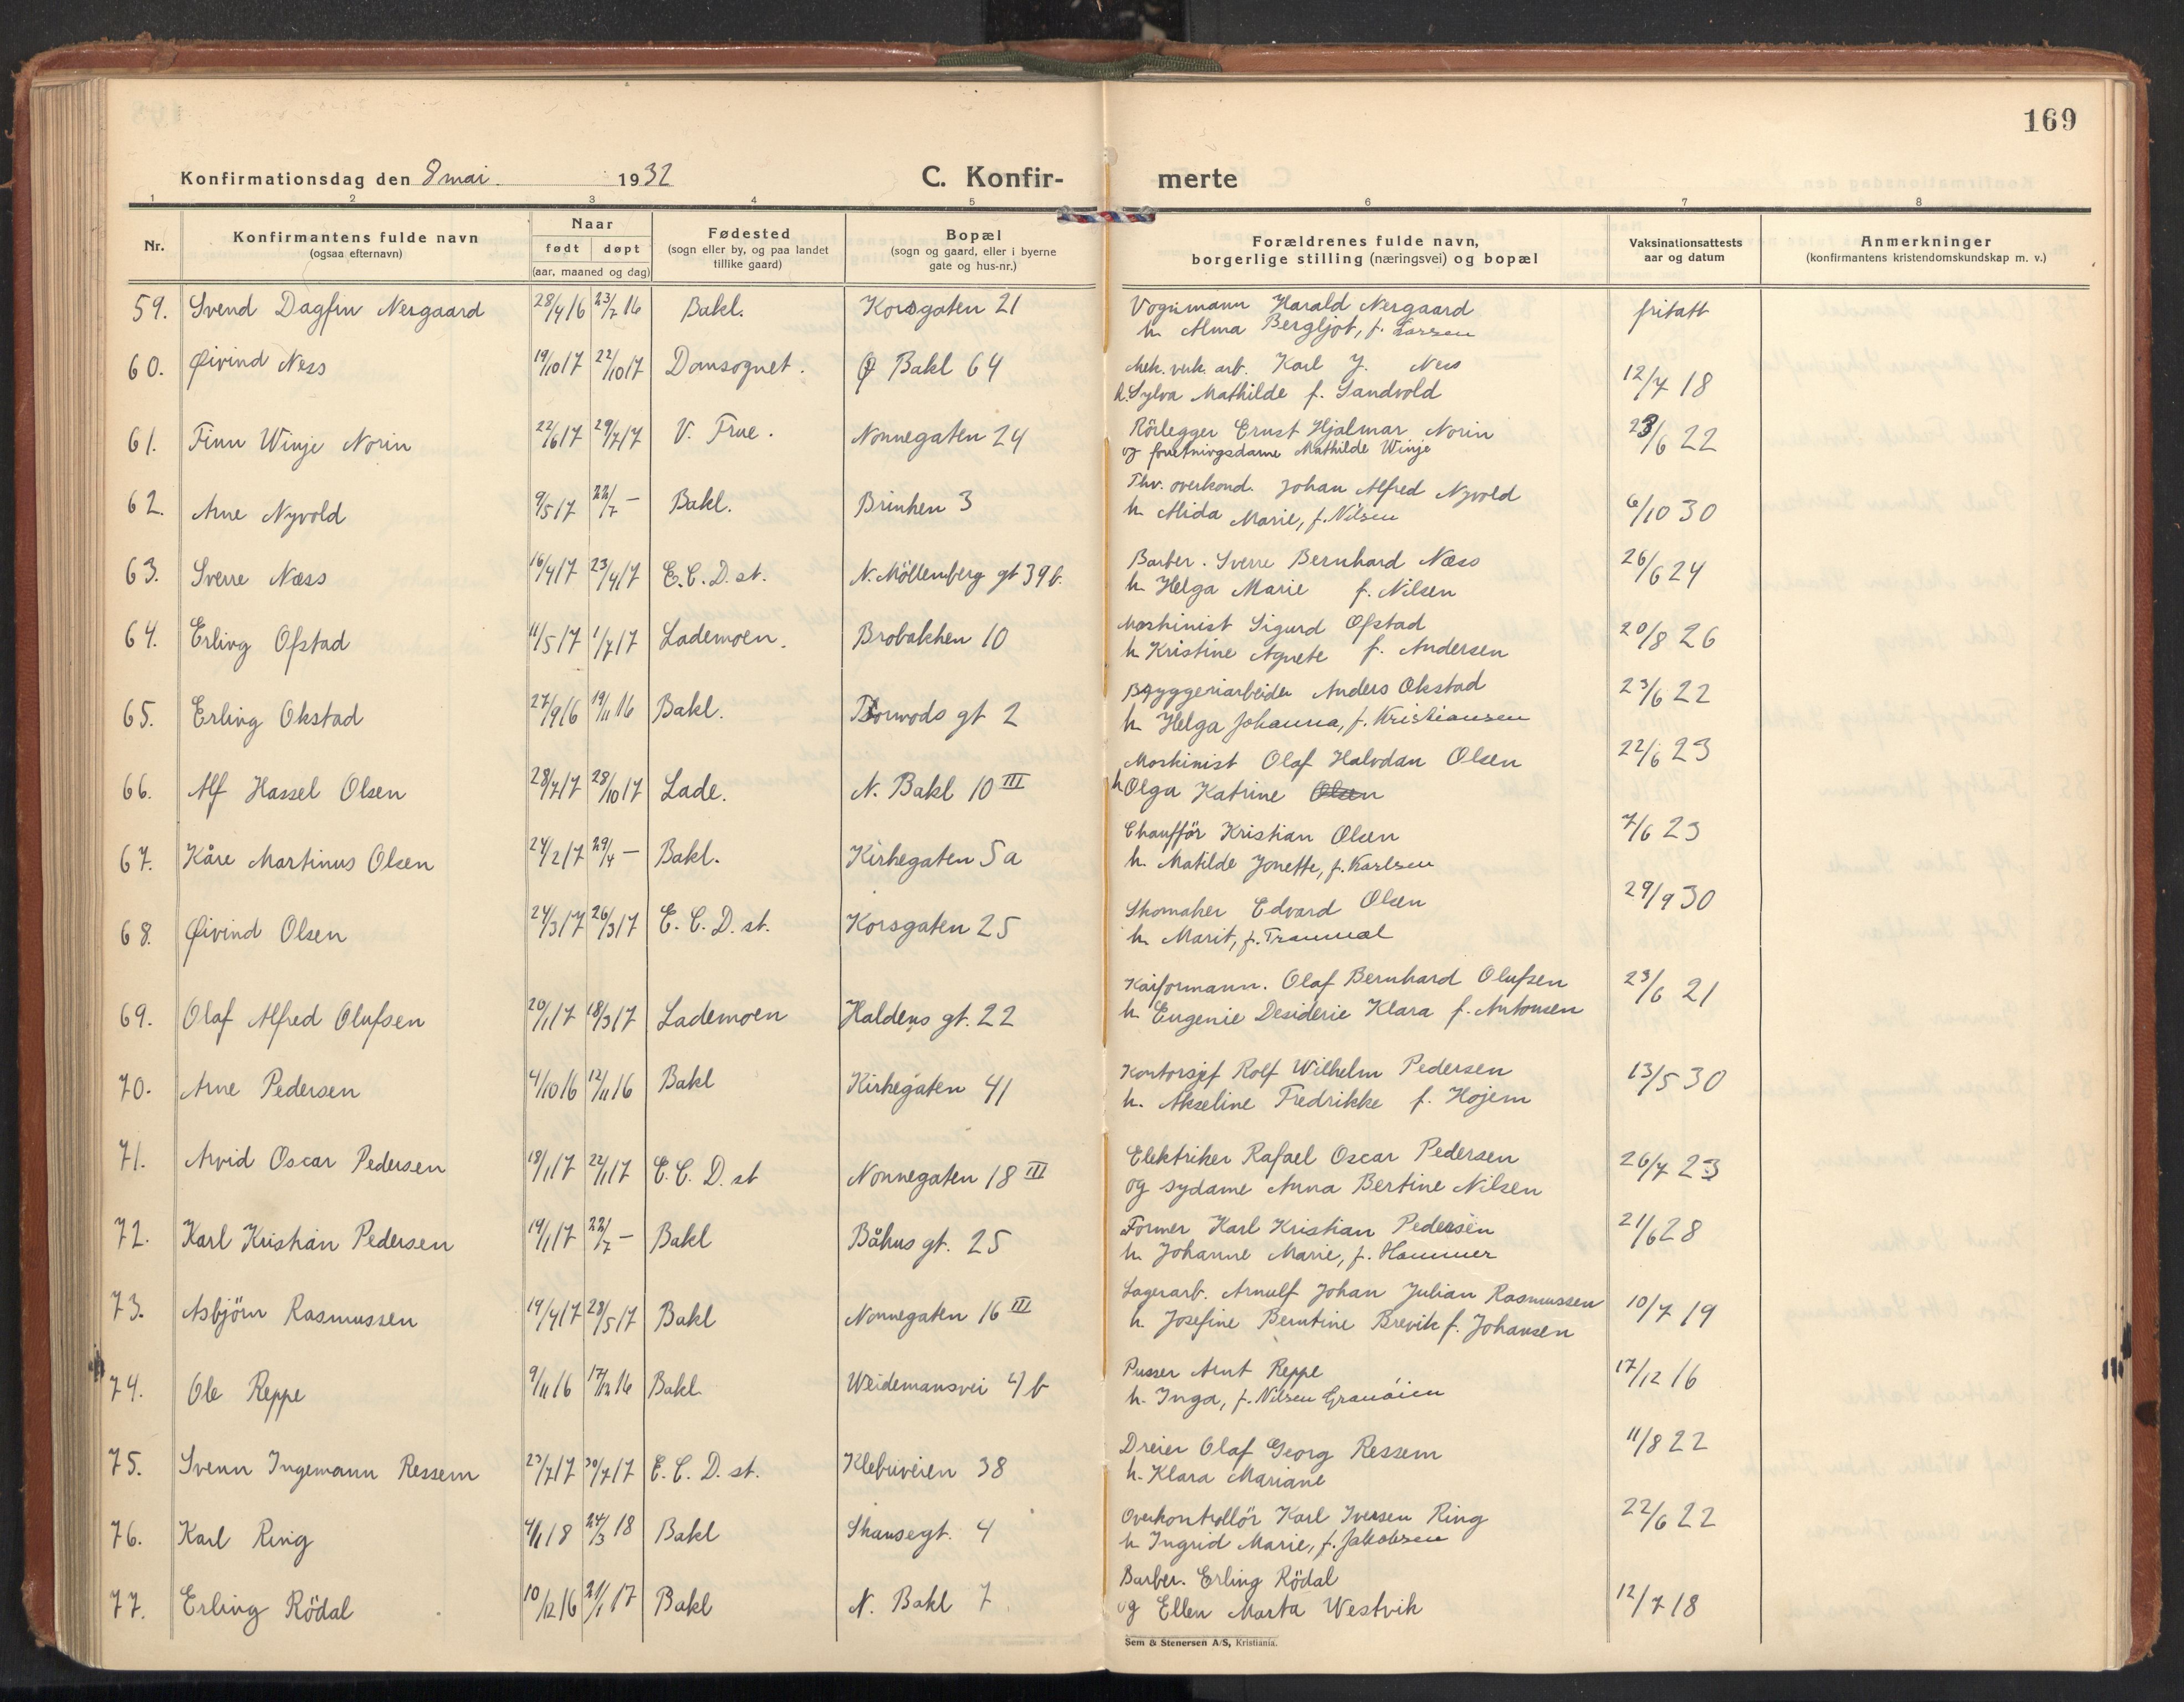 169
Konfirmationsdag den 8 mai. 1932 C. Konfir- merte
1 2 3 4 5 6 7 8
Nr. Konfirmantens fulde navn (ogsaa efternavn) Naar født døpt (aar, maaned og dag) Fødested (sogn eller by, og paa landet tillike gaard) Bopæl (sogn og gaard, eller i byerne gate og hus-nr.) Forældrenes fulde navn, borgerlige stilling (næringsvei) og bopæl Vaksinationsattests aar og datum Anmerkninger (konfirmantens kristendomskundskap m. v.)
59. Svend Dagfin Nergaard 28/4 16 23/7 16 Bakl. Korsgaten 21 Vognmann Harald Nergaard fritatt
h. Alma Bergljot, f. Larsen
60. Øivind Ness 19/10 17 22/10 17 Domsognet. Ø Bakl 64 Mek. verk. arb. Karl J. Ness 12/7 18
h. Sylva Mathilde f. Sandvold
61. Finn Winje Norin 22/6 17 29/7 17 V. Frue. Nonnegaten 24 Rörlegger Ernst Hjalmar Norin 23/6 22
og forretningsdame Mathilde Winje
62. Arne Nyvold 9/5 17 22/7 — Bakl. Brinken 3 Thv. overkond. Johan Alfred Nyvold 6/10 30
h. Alida Marie, f. Nilsen
63. Sverre Næss 16/4 17 23/4 17 E. C. D. st. N. Möllenberg gt 39 b. Barber. Sverre Bernhard Næss 26/6 24
h. Helga Marie f. Nilsen
64. Erling Ofstad 11/5 17 1/7 17 Lademoen. Brobakken 10 Maskinist Sigurd Ofstad 20/8 26
h. Kristine Agnete f. Andersen
65. Erling Okstad 27/9 16 19/11 16 Bakl. Tormods gt 2 Bryggeriarbeider Anders Okstad 23/6 22
h. Helga Johanna, f. Kristiansen
66. Alf Hassel Olsen 28/7 17 28/10 17 Lade. N. Bakl 10 III Maskinist Olaf Halvdan Olsen 22/6 23
h Olga Katrine Olsen
67. Kåre Martinus Olsen 24/2 17 29/4 — Bakl. Kirkegaten 5a Chauffør Kristian Olsen 7/6 23
h. Matilde Jonette, f. Karlsen
68. Øivind Olsen 24/3 17 26/3 17 E. C. D. st. Korsgaten 25 Skomaker Edvard Olsen 29/9 30
h. Marit, f.
69. Olaf Alfred Olufsen 20/1 17 18/3 17 Lademoen Haldens gt. 22 Kaiformann. Olaf Bernhard Olufsen 23/6 21
h. Eugenie Desiderie Klara f. Antonsen
70. Arne Pedersen 4/10 16 12/11 16 Bakl Kirkegaten 41 Kontorsjef Rolf Wilhelm Pedersen 13/5 30
h. Akseline Fredrikke f. Hojem
71. Arvid Oscar Pedersen 18/1 17 22/1 17 E. C. D. st Nonnegaten 18 III Elektriker Rafael Oscar Pedersen 26/7 23
og sydame Anna Bertine Nilsen
72. Karl Kristian Pedersen 14/1 17 22/7 — Bakl Båhus gt. 25 Former Karl Kristian Pedersen 21/6 28
h. Johanne Marie, f. Hammer
73. Asbjörn Rasmussen 19/4 17 28/5 17 Bakl Nonnegaten 16 III Lagerarb. Arnulf Johan Julian Rasmussen 10/7 19
h. Josefine Berntine Brevik f. Johansen
74. Ole Reppe 9/11 16 17/12 16 Bakl Weidemansvei 4 b Pusser Arnt Reppe 17/12 16
h. Inga, f. Nilsen Granöien
75. Svenn Ingemann Ressem 23/7 17 30/7 17 E. C. D. st. Klebuveien 38 Dreier Olaf Georg Ressem 11/8 22
h. Klara Mariane
76. Karl Ring 4/1 18 24/3 18 Bakl Skansegt. 4 Overkontrollör Karl Iversen Ring 22/6 22
h Ingrid Marie, f. Jakobsen
77. Erling Rödal 10/12 16 21/1 17 Bakl N. Bakl 7 Barber. Erling Rödal 12/7 18
og Ellen Marta Westvik
Sem & Stenersen A/S, Kristiania.